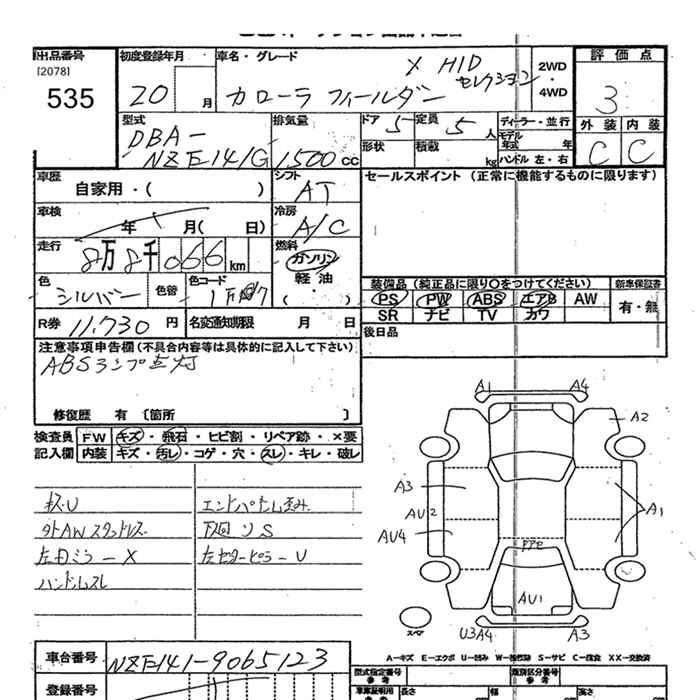 出品番号
[2078]
535
初度登録年月
20 月
車名・グレード
X HID
セレクション
カローラ フィールダー
2WD
・
4WD
評価点
3
外装 内装
C C
型式
DBA-
NZE141G
排気量
1500 cc
ドア 5
定員 5 人
ディーラー・並行
モデル年式 年
形状
積載 kg
ハンドル 左・右
車歴
自家用・( )
シフト
AT
セールスポイント (正常に機能するものに限ります)
車検
年 月( 日)
冷房
A/C
走行
8万8千066 km
燃料
ガソリン
軽油
( )
色
シルバー
色替
色コード
装備品 (純正品に限り○をつけてください)
新車保証書
PS PW ABS エアB AW
SR ナビ TV カワ
有・無
R券 11,730 円
名変通知期限 月 日
後日品
注意事項申告欄 (不具合内容等は具体的に記入して下さい)
ABSランプ点灯
修復歴 有 〔箇所 〕
検査員 FW キズ・飛石・ヒビ割・リペア跡・×要
記入欄 内装 キズ・汚レ・コゲ・穴・スレ・キレ・破レ
キズ・U
外AWスタッドレス
左ドミラーX
ハンドルスレ
エンドパネル歪み
下廻りS
左センターピラーU
A1 A4
A2
A3
AU2
AU4
A1
ドアセ
AU1
スペア
U3A4 A3
A-キズ E-エクボ U-凹み W-補修跡 S-サビ C-腐食 XX-交換済
車台番号 NZE141-9065123
登録番号
型式指定番号
参考
類別区分番号
参考
車庫証明用
参考
長さ 幅 高さ